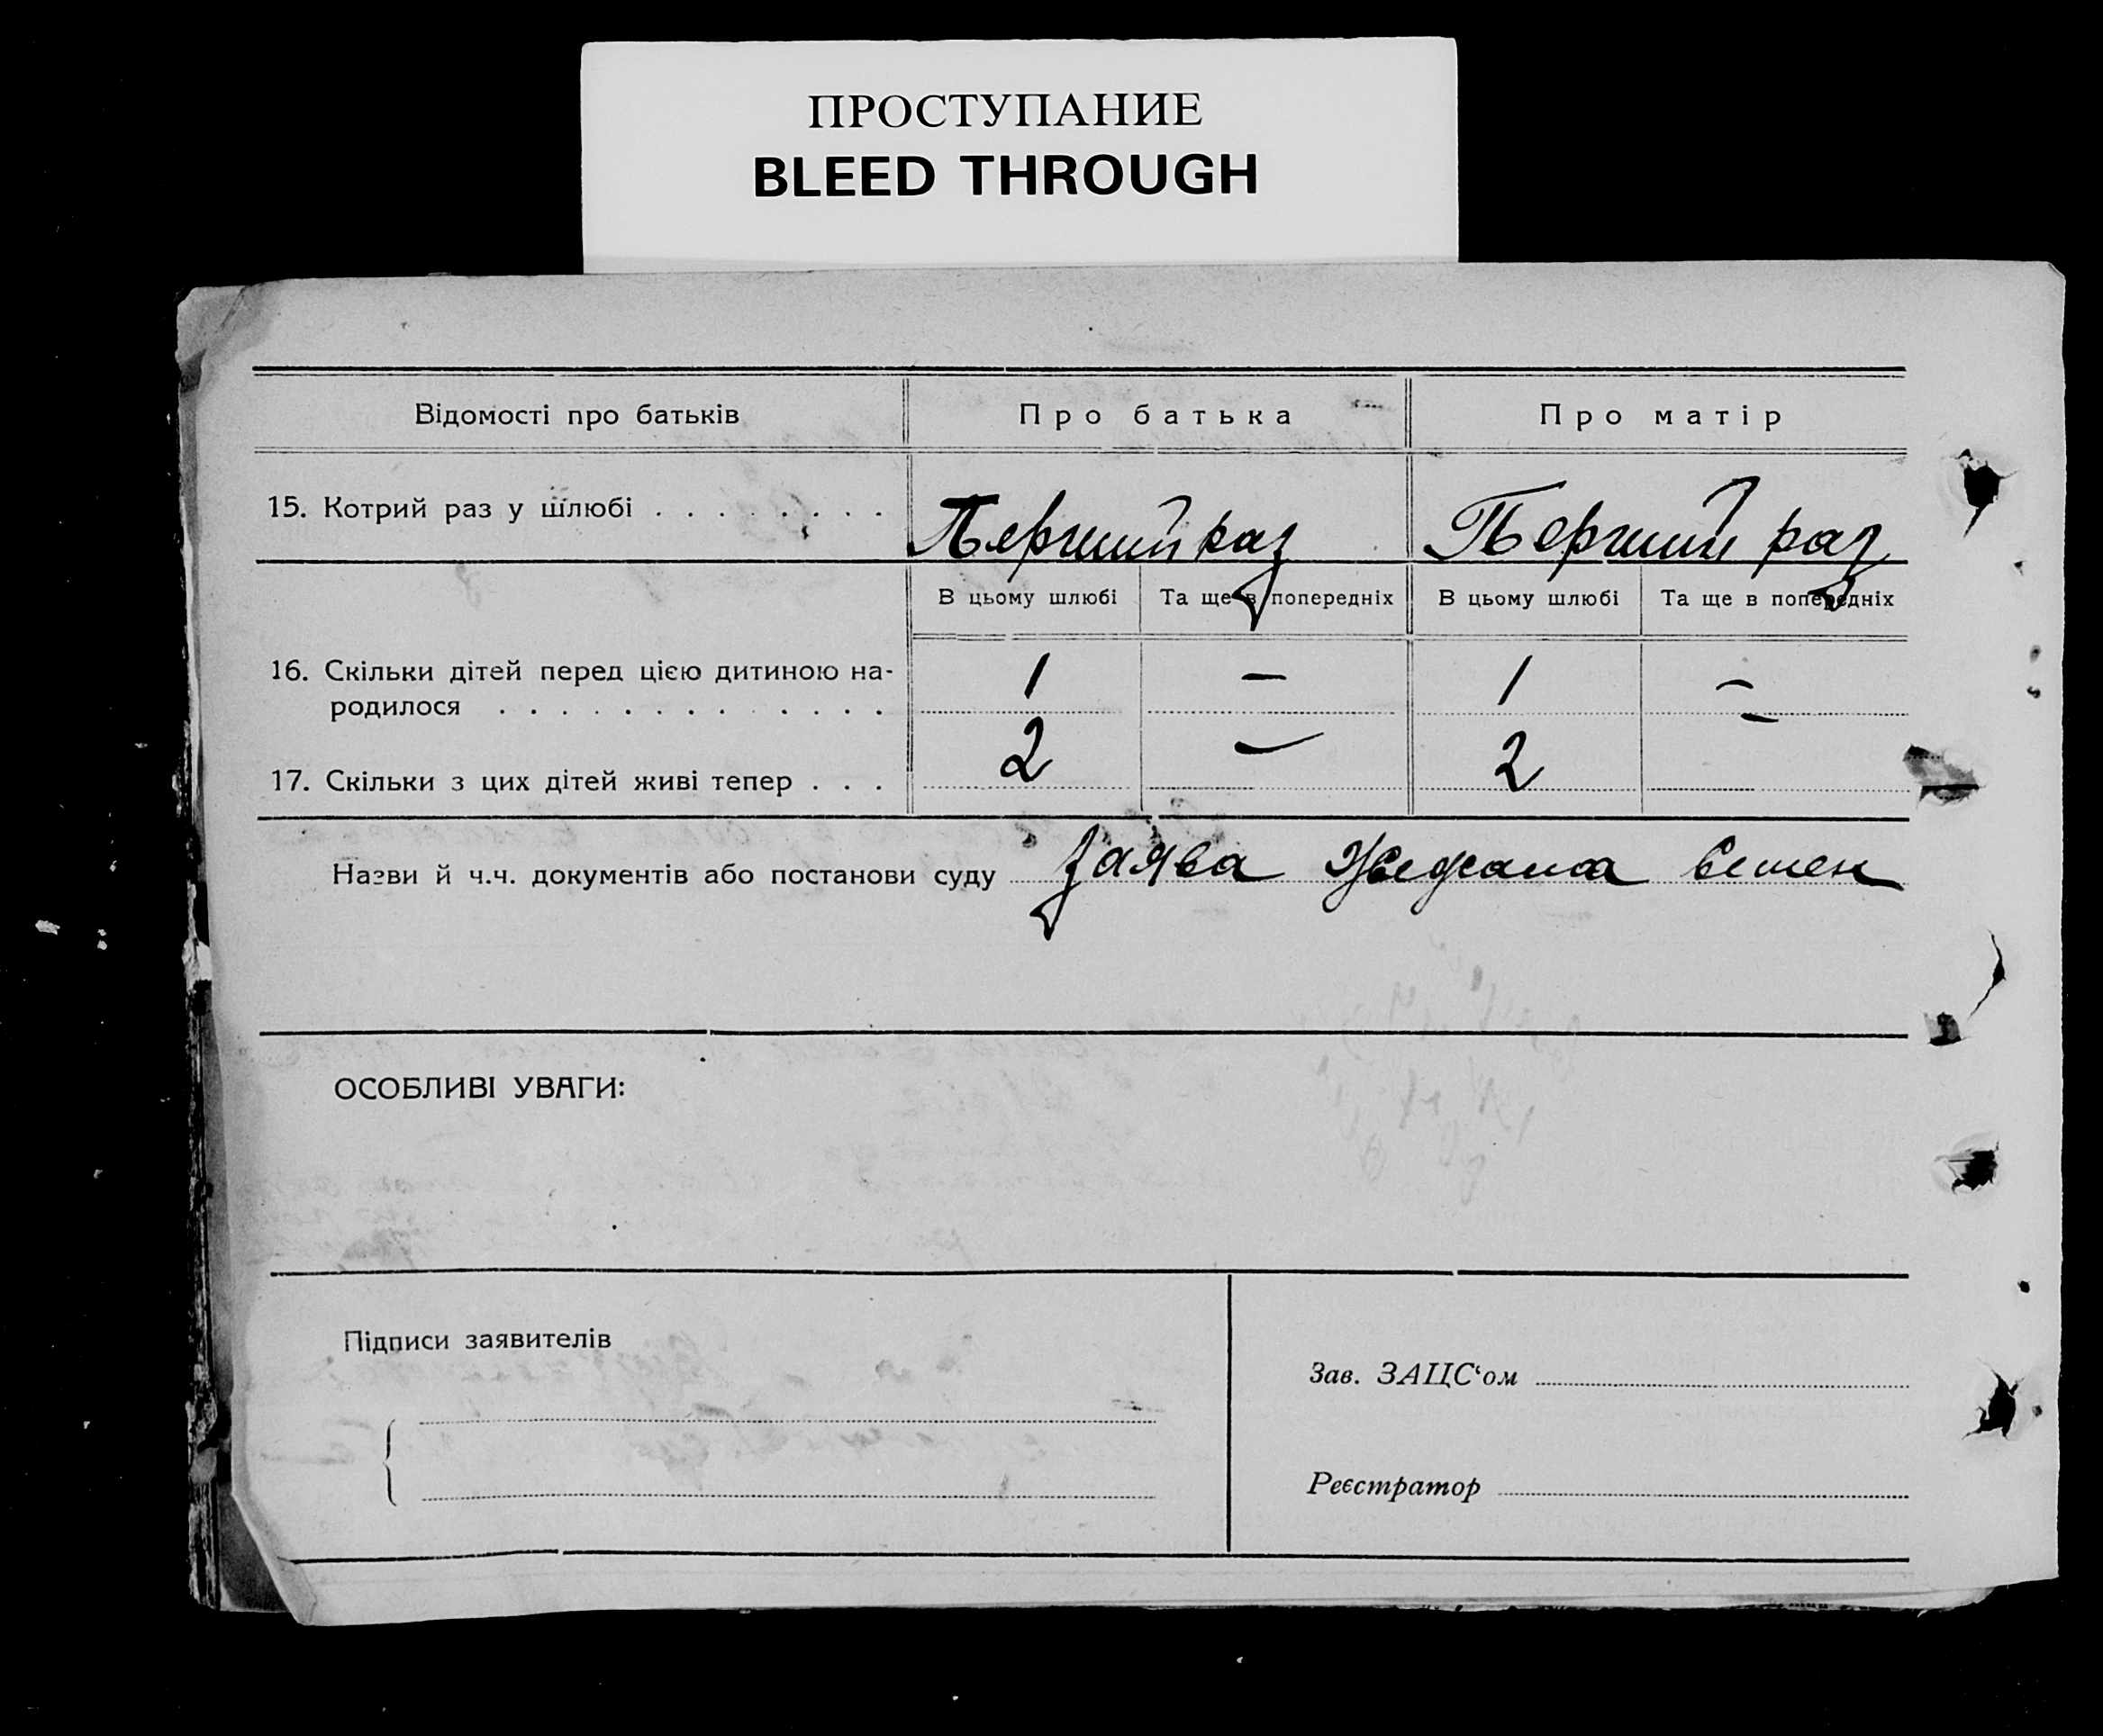 ПРОСТУПАНИЕ
BLEED THROUGH
Відомості про батьків Про батька Про матір
15. Котрий раз у шлюбі . . . . . . . . Перший раз Перший раз
В цьому шлюбі Та ще в попередніх В цьому шлюбі Та ще в попередніх
16. Скільки дітей перед цією дитиною на-
родилося . . . . . . . . . . . . . . 1 — 1 —
17. Скільки з цих дітей живі тепер . . . 2 — 2 —
Назви й ч.ч. документів або постанови суду Заява
ОСОБЛИВІ УВАГИ:
Підписи заявителів
Зав. ЗАЦС‘ом
Реєстратор